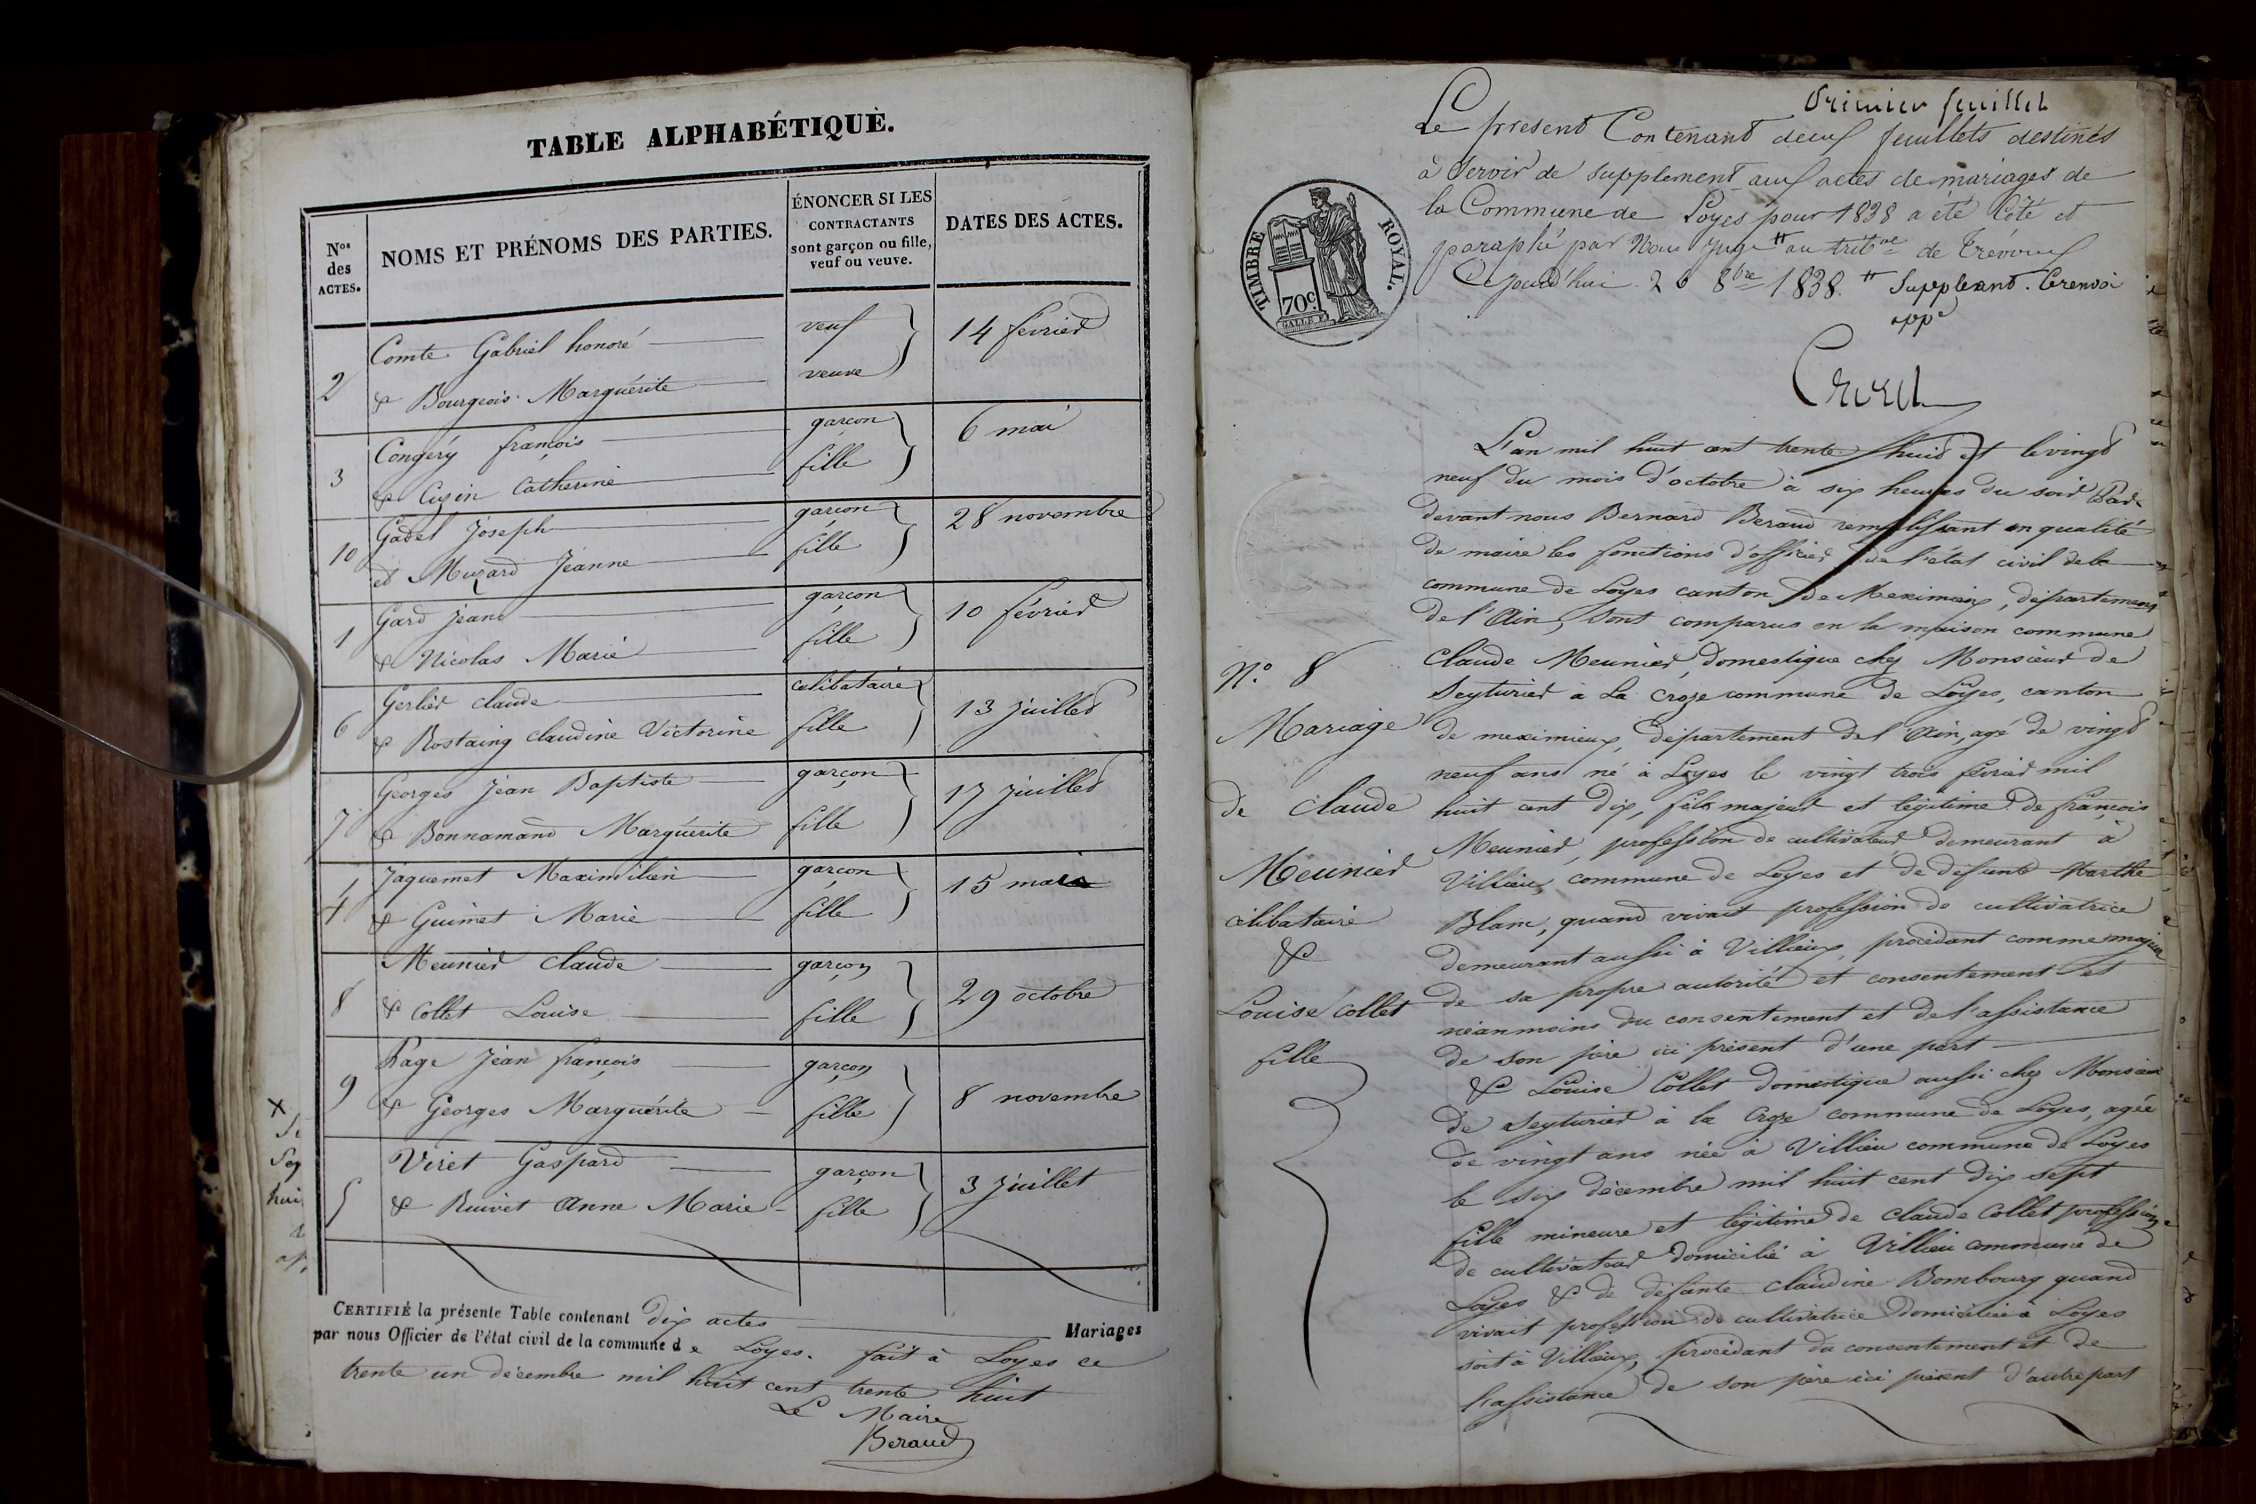 TABLE ALPHABÉTIQUE.
Nos des ACTES.
NOMS ET PRÉNOMS DES PARTIES.
ÉNONCER SI LES CONTRACTANTS sont garçon ou fille, veuf ou veuve.
DATES DES ACTES.
Comte Gabriel honoré veuf 14 février
2 & Bourgeois Marguérite veuve
Congéry françois garçon 6 mai
3 & Cuzin Catherine fille
Gadel Joseph garçon 28 novembre
10 et Muzard Jeanne fille
Gard jean garçon 10 février
1 & Nicolas Marie fille
Gerlier claude celibataire 13 juillet
6 & Rostaing claudine Victorine fille
Georges Jean Baptiste garçon 17 juillet
7 & Bonnamand Marguérite fille
Jaquemet Maximilien garçon 15 mai
4 & Guimet Marie fille
Meunier claude garçon 29 octobre
8 & Collet Louise fille
Page Jean françois garçon 8 novembre
9 & Georges Marguérite fille
Viret Gaspard garçon 3 juillet
5 & Ruivet Anne Marie fille
CERTIFIÉ la présente Table contenant dix actes Mariages
par nous Officier de l'état civil de la commune de Loyes. fait à Loyes ce
trente un décembre mil huit cent trente huit
Le Maire
Beraud
premier feuillet
Le présent Contenant deux feuillets destinés
à servir de supplement aux actes de mariages de
la Commune de Loyes pour 1838 a été Coté et
paraphé par Nous Juge # au tribnal de Trévoux
Cejourd'hui 26 8bre 1838. # suppléant. Le renvoi
appé
TIMBRE ROYAL.
70c
L'an mil huit cent trente huit et le vingt
neuf du mois d'octobre à six heures du soir Par-
devant nous Bernard Beraud remplissant en qualité
de maire les fonctions d'officier de l'état civil de la
commune de Loyes canton de Meximieux, département
de l'Ain, sont comparus en la maison commune
No. 8
Mariage
de Claude
Meunier
célibataire
&
Louise Collet
fille
Claude Meunier, domestique chez Monsieur de
Seyturier à La Croze commune de Loyes, canton
de meximieux, département de l'Ain, agé de vingt
neuf ans né à Loyes le vingt trois février mil
huit cent dix, fils majeur et légitime de françois
Meunier, profession de cultivateur demeurant à
Villieux, commune de Loyes et de defunte Marthe
Blanc, quand vivait profession de cultivatrice
demeurant aussi à Villieux, procédant comme majeur
de sa propre autorité et consentement et
néanmoins du consentement et de l'assistance
de son père ici présent d'une part
& Louise Collet domestique aussi chez Monsieur
de Seyturier à la Croze commune de Loyes, agée
de vingt ans née à Villieu commune de Loyes
le six décembre mil huit cent dix sept
fille mineure et légitime de claude Collet profession
de cultivateur domicilié à Villieu commune de
Loyes & de défunte claudine Bombourg quand
vivait profession de cultivatrice domiciliée à Loyes
soit à Villieux, procédant du consentement et de
l'assistance de son père ici présent d'autre part